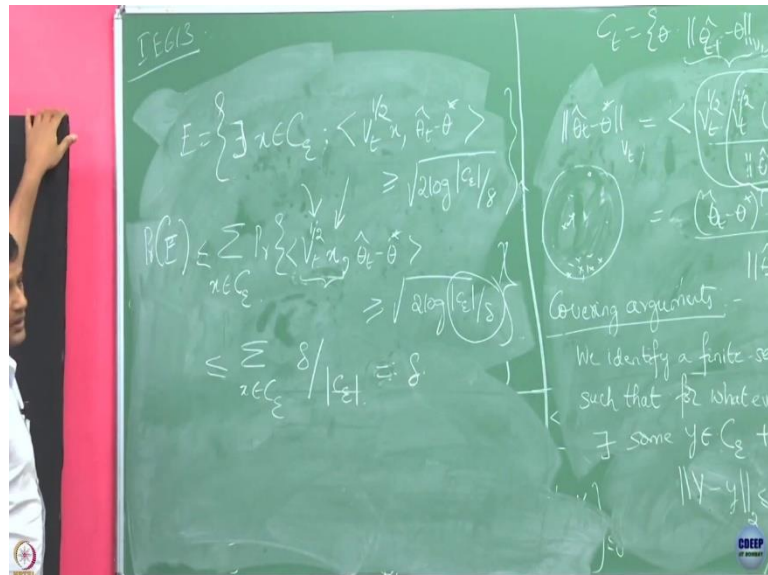 IE613
E = { ∃ x ∈ C_ε ; < V_t^{1/2} x, θ̂_t - θ* >
≥ √(2 log |C_ε|/δ) }
Pr(E) ≤ Σ_{x∈C_ε} Pr { < V_t^{1/2} x, θ̂_t - θ* >
≥ √(2 log |C_ε|/δ) }
≤ Σ_{x∈C_ε} δ/|C_ε| = δ
C_t = { θ : ||θ̂_{t-1} - θ||
||θ̂_t - θ*||_{V_t} = < V_t^{1/2} V_t^{1/2} (
= (θ̂_t - θ*)
Covering arguments -
We identify a finite-se
such that for whatev
∃ some y ∈ C_ε
||V - y||_2 ≤
CDEEP
IIT BOMBAY